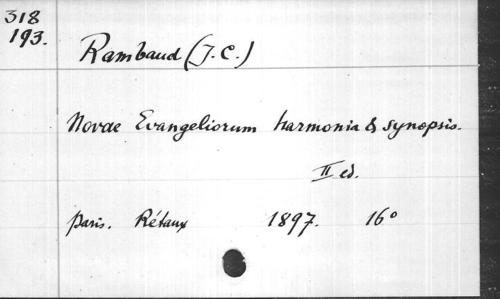 318
193.
Rambaud (J. C.)
Novae Evangeliorum harmonia & synopsis.
II ed.
Paris. Rétaux 1897. 16°